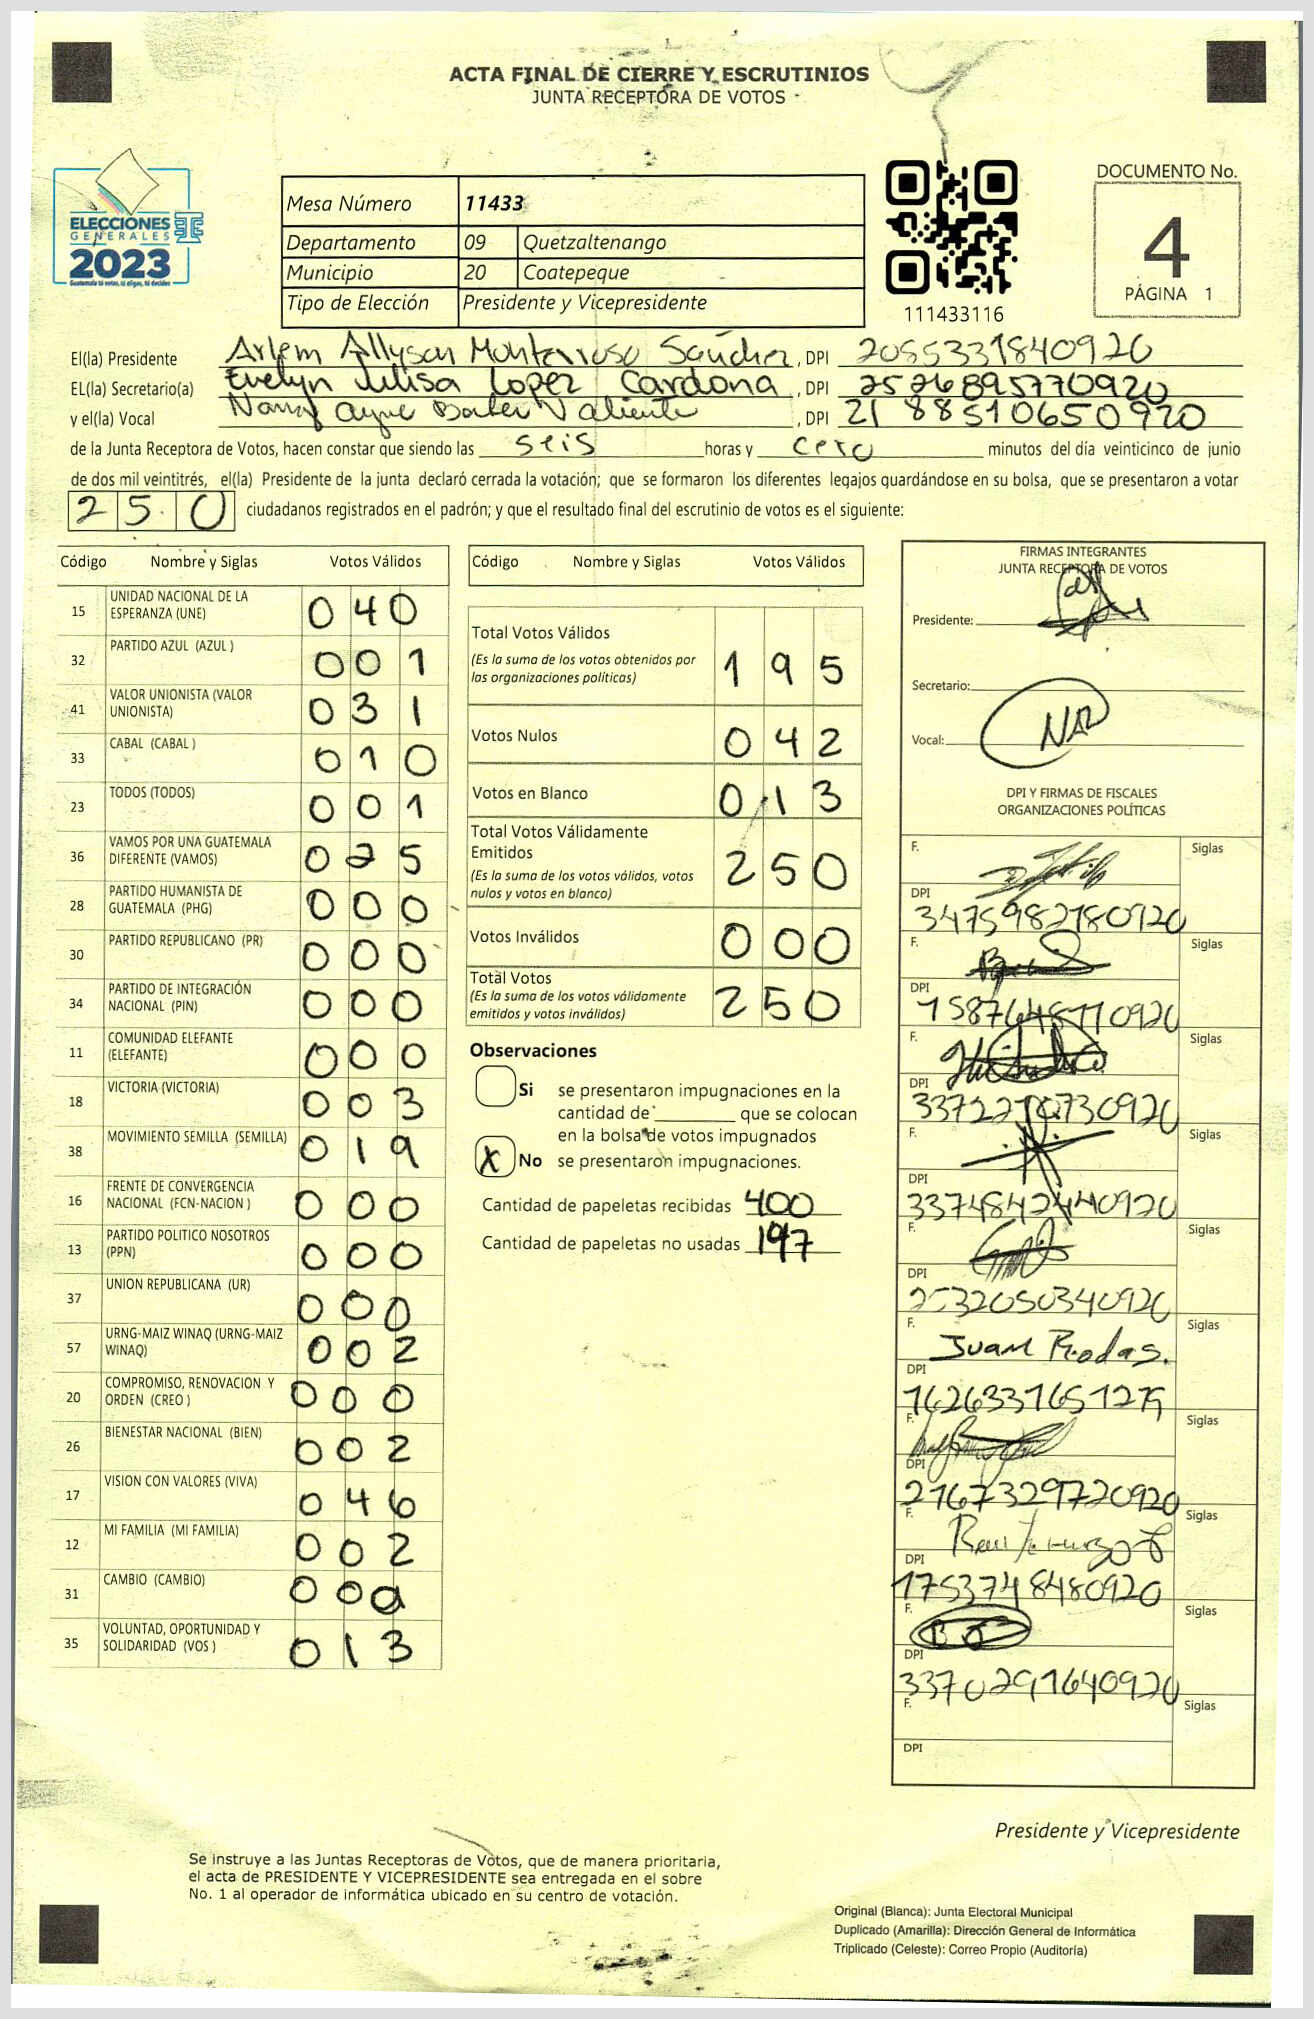 ACTA FINAL DE CIERRE Y ESCRUTINIOS
JUNTA RECEPTORA DE VOTOS
ELECCIONES
GENERALES
2023
Guatemala tú votas, tú eliges, tú decides
Mesa Número 11433
Departamento 09 Quetzaltenango
Municipio 20 Coatepeque
Tipo de Elección Presidente y Vicepresidente
111433116
DOCUMENTO No.
4
PÁGINA 1
El(la) Presidente Arlem Allyson Monterroso Sánchez, DPI 2055331840920
EL(la) Secretario(a) Evelyn Julisa Lopez Cardona, DPI 2526895770920
y el(la) Vocal Valiente, DPI 2188510650920
de la Junta Receptora de Votos, hacen constar que siendo las seis horas y cero minutos del día veinticinco de junio
de dos mil veintitrés, el(la) Presidente de la junta declaró cerrada la votación; que se formaron los diferentes legajos guardándose en su bolsa, que se presentaron a votar
250 ciudadanos registrados en el padrón; y que el resultado final del escrutinio de votos es el siguiente:
Código Nombre y Siglas Votos Válidos
15 UNIDAD NACIONAL DE LA ESPERANZA (UNE) 040
32 PARTIDO AZUL (AZUL ) 001
41 VALOR UNIONISTA (VALOR UNIONISTA) 031
33 CABAL (CABAL ) 010
23 TODOS (TODOS) 001
36 VAMOS POR UNA GUATEMALA DIFERENTE (VAMOS) 025
28 PARTIDO HUMANISTA DE GUATEMALA (PHG) 000
30 PARTIDO REPUBLICANO (PR) 000
34 PARTIDO DE INTEGRACIÓN NACIONAL (PIN) 000
11 COMUNIDAD ELEFANTE (ELEFANTE) 000
18 VICTORIA (VICTORIA) 003
38 MOVIMIENTO SEMILLA (SEMILLA) 019
16 FRENTE DE CONVERGENCIA NACIONAL (FCN-NACION ) 000
13 PARTIDO POLITICO NOSOTROS (PPN) 000
37 UNION REPUBLICANA (UR) 000
57 URNG-MAIZ WINAQ (URNG-MAIZ WINAQ) 002
20 COMPROMISO, RENOVACION Y ORDEN (CREO ) 000
26 BIENESTAR NACIONAL (BIEN) 002
17 VISION CON VALORES (VIVA) 046
12 MI FAMILIA (MI FAMILIA) 002
31 CAMBIO (CAMBIO) 000
35 VOLUNTAD, OPORTUNIDAD Y SOLIDARIDAD (VOS ) 013
Código Nombre y Siglas Votos Válidos
Total Votos Válidos 195
(Es la suma de los votos obtenidos por
las organizaciones políticas)
Votos Nulos 042
Votos en Blanco 013
Total Votos Válidamente
Emitidos 250
(Es la suma de los votos válidos, votos
nulos y votos en blanco)
Votos Inválidos 000
Total Votos 250
(Es la suma de los votos válidamente
emitidos y votos inválidos)
Observaciones
Si se presentaron impugnaciones en la
cantidad de ________ que se colocan
en la bolsa de votos impugnados
X No se presentaron impugnaciones.
Cantidad de papeletas recibidas 400
Cantidad de papeletas no usadas 197
FIRMAS INTEGRANTES
JUNTA RECEPTORA DE VOTOS
Presidente:
Secretario:
Vocal:
DPI Y FIRMAS DE FISCALES
ORGANIZACIONES POLÍTICAS
F. Siglas
DPI
3475982780920
F. Siglas
DPI
F. Siglas
DPI
F. Siglas
DPI
3374842440920
F. Siglas
DPI
2532050340920
F. Juan Rodas. Siglas
DPI
F. Siglas
DPI
2767329720920
F. Siglas
DPI
1753748480920
F. Siglas
DPI
3370291640920
F. Siglas
DPI
Presidente y Vicepresidente
Se instruye a las Juntas Receptoras de Votos, que de manera prioritaria,
el acta de PRESIDENTE Y VICEPRESIDENTE sea entregada en el sobre
No. 1 al operador de informática ubicado en su centro de votación.
Original (Blanca): Junta Electoral Municipal
Duplicado (Amarilla): Dirección General de Informática
Triplicado (Celeste): Correo Propio (Auditoría)